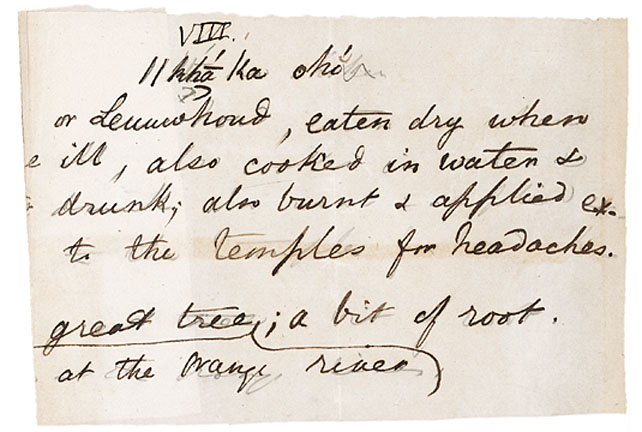 VIII.
ǁ khā́ ka ohó
or Leeuwhoud, eaten dry when
e ill, also cooked in water &
drunk; also burnt & applied ex-
to the temples for headaches.
great tree; a bit of root.
at the Orange river